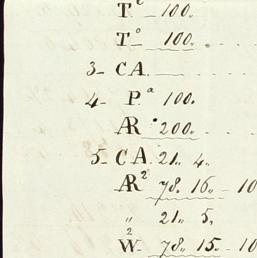 T° — 100.
T° — 100.
3 – CA.
4 – Pª 100.
AR 200.
5 – CA. 21. 4.
AR² 78. 16 – 10
" 21. 5.
W² 78. 15. – 10